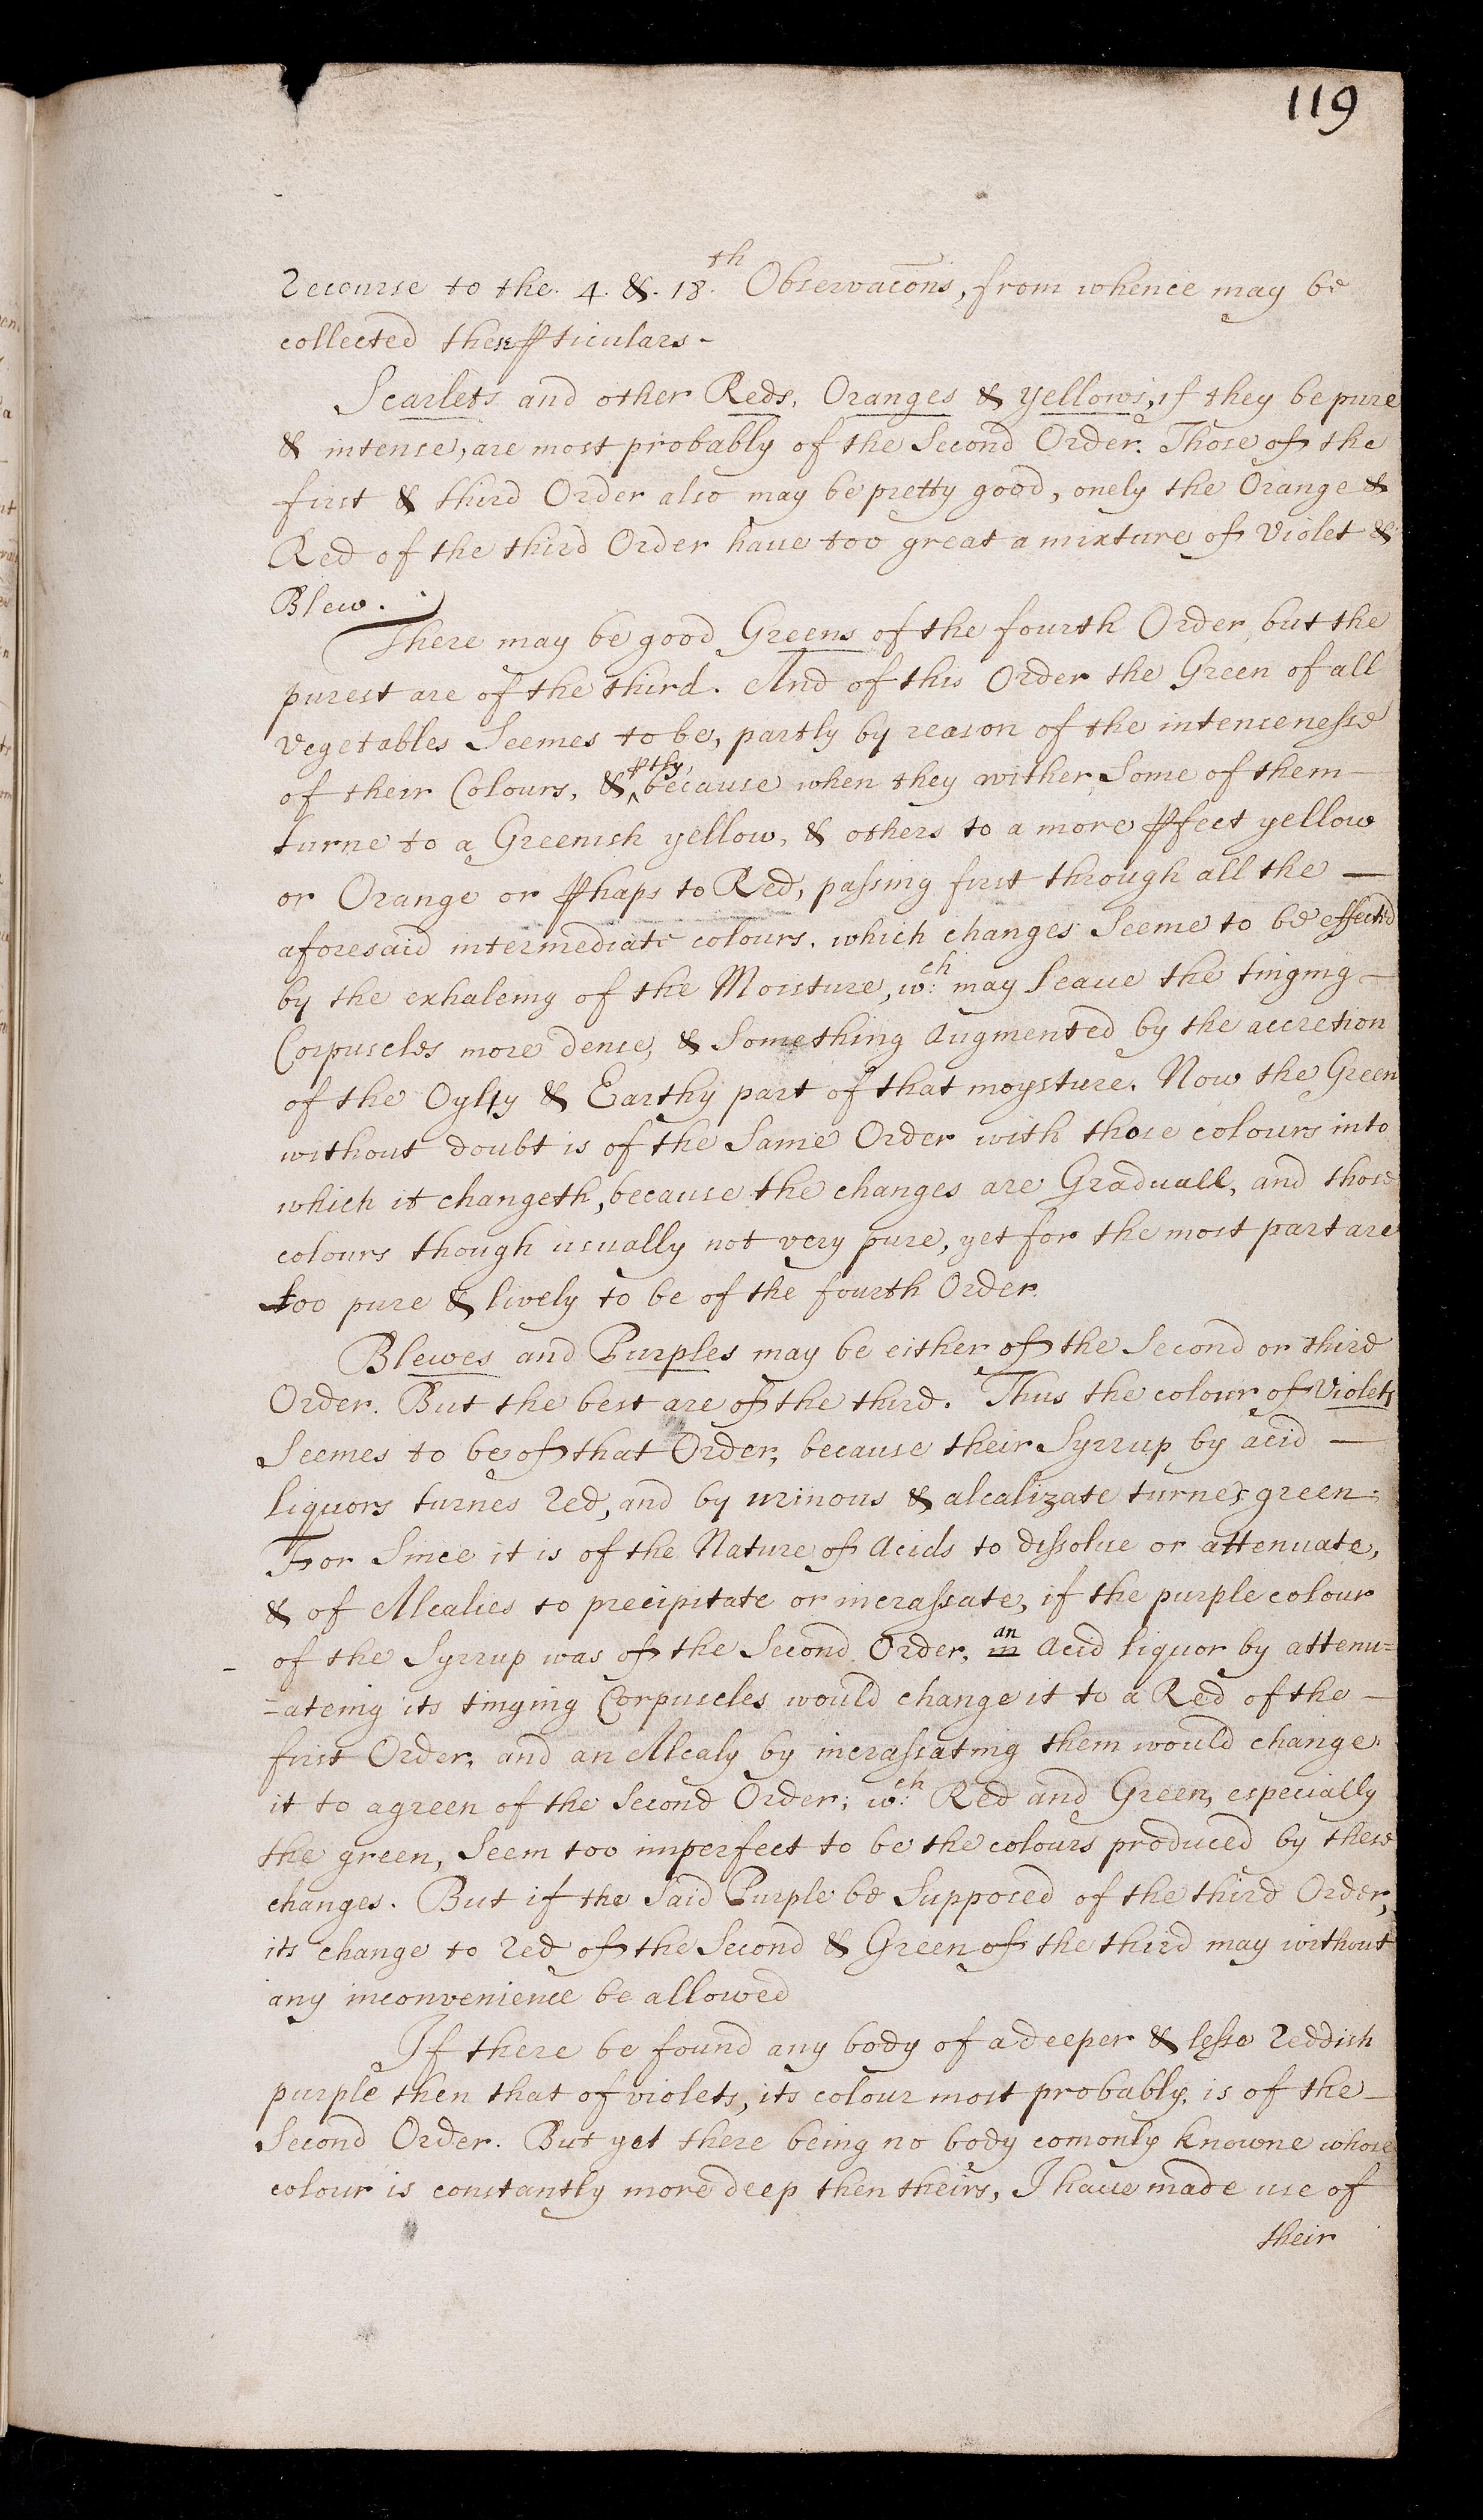 119
recourse to the. 4. &. 18.th Observacōns, from whence may be
collected these ꝑticulars -
Scarlets and other Reds, Oranges & yellows, if they be pure
& intense, are most probably of the Second Order. Those of the
first & third Order also may be pretty good, onely the Orange &
Red of the third Order have too great a mixture of Violet &
Blew.
There may be good Greens of the fourth Order, but the
purest are of the third. And of this Order the Green of all
vegetables Seemes to be, partly by reason of the intensenesse
of their Colours, & ꝑtly, because when they wither, Some of them
turne to a Greenish yellow, & others to a more ꝑfect yellow
or Orange or ꝑhaps to Red, passing first through all the
aforesaid intermediate colours. which changes Seeme to be effected
by the exhaleing of the Moisture, w:ch may leave the tinging
Corpuscles more dense, & Something Augmented by the accretion
of the Oyly & Earthy part of that moysture. Now the Green
without doubt is of the Same Order with those colours into
which it changeth, because the changes are Graduall, and those
colours though usually not very pure, yet for the most part are
too pure & lively to be of the fourth Order.
Blewes and Purples may be either of the Second or third
Order. But the best are of the third. Thus the colour of Violets
Seemes to be of that Order, because their Syrrup by acid
liquors turnes red, and by urinous & alcalizate turnes green.
For Since it is of the Nature of Acids to dissolve or attenuate,
& of Alcalies to precipitate or incrassate, if the purple colour
of the Syrrup was of the Second Order, an Acid liquor by attenu=
=ateing its tinging Corpuscles would change it to a Red of the
first Order, and an Alcaly by incrassating them would change
it to a green of the Second Order; w:ch Red and Green, especially
the green, Seem too imperfect to be the colours produced by these
changes. But if the Said Purple be Supposed of the third Order,
its change to red of the Second & Green of the third may without
any inconvenience be allowed
If there be found any body of a deeper & lesse reddish
purple then that of violets, its colour most probably, is of the
Second Order. But yet there being no body comonly knowne whose
colour is constantly more deep then theirs, I have made use of
their